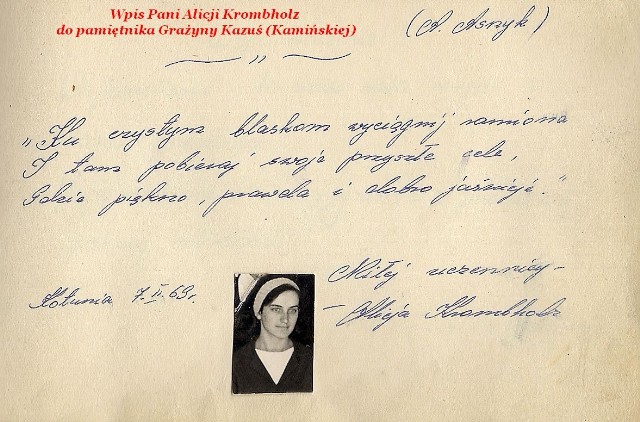 Wpis Pani Alicji Krombholz
do pamiętnika Grażyny Kazuś (Kamińskiej)
(A. Asnyk)
„Ku czystym blaskom wyciągnij ramiona
I tam pobieraj swoje przyszłe cele,
Gdzie piękno, prawda i dobro jaśnieje."
Kotunia 7.II.69r.
Miłej uczennicy –
– Alicja Krombholz